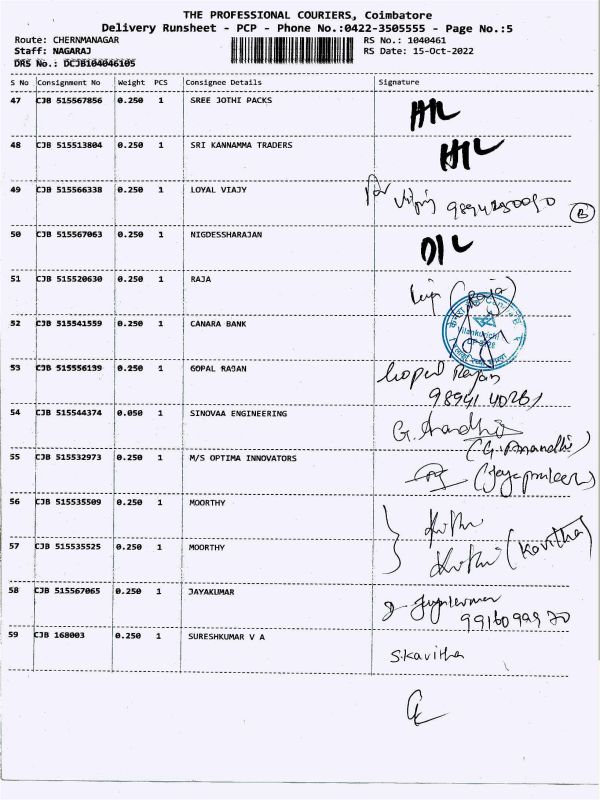 THE PROFESSIONAL COURIERS, Coimbatore
Delivery Runsheet - PCP - Phone No.:0422-3505555 - Page No.:5
Route: CHERNMANAGAR RS No.: 1040461
Staff: NAGARAJ RS Date: 15-Oct-2022
DRS No.: DCJB104046105
S No Consignment No Weight PCS Consignee Details Signature
47 CJB 515567856 0.250 1 SREE JOTHI PACKS
48 CJB 515513804 0.250 1 SRI KANNAMMA TRADERS
49 CJB 515566338 0.250 1 LOYAL VIAJY
50 CJB 515567063 0.250 1 NIGDESSHARAJAN
51 CJB 515520630 0.250 1 RAJA (Raja)
52 CJB 515541559 0.250 1 CANARA BANK
53 CJB 515556139 0.250 1 GOPAL RAJAN Gopal Rajan
54 CJB 515544374 0.050 1 SINOVAA ENGINEERING G. Anandhi
(G. Anandhi)
55 CJB 515532973 0.250 1 M/S OPTIMA INNOVATORS
56 CJB 515535509 0.250 1 MOORTHY
57 CJB 515535525 0.250 1 MOORTHY (Kavitha)
58 CJB 515567065 0.250 1 JAYAKUMAR
9916099970
59 CJB 168003 0.250 1 SURESHKUMAR V A S.Kavitha